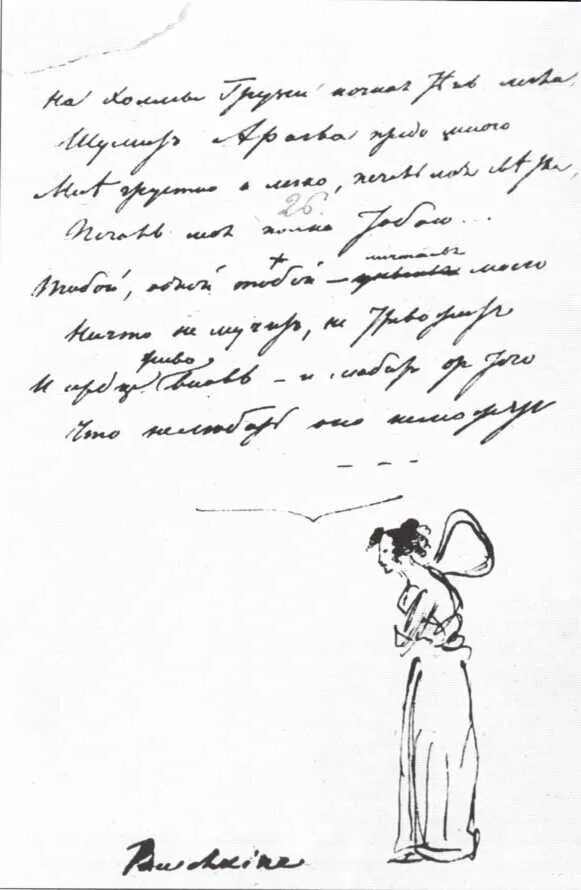 На холмы Грузіи ночная тѣнь легла,
Шумитъ Арагва предо мною
Мнѣ грустно и легко, печаль моя свѣтла,
26.
Печаль моя полна тобою...
Тобой, одной тобой — моего
Ничто не мучитъ, не тревожитъ
И сердце вновь — и любитъ отъ того
Что не любить оно не можетъ
Pouchkine